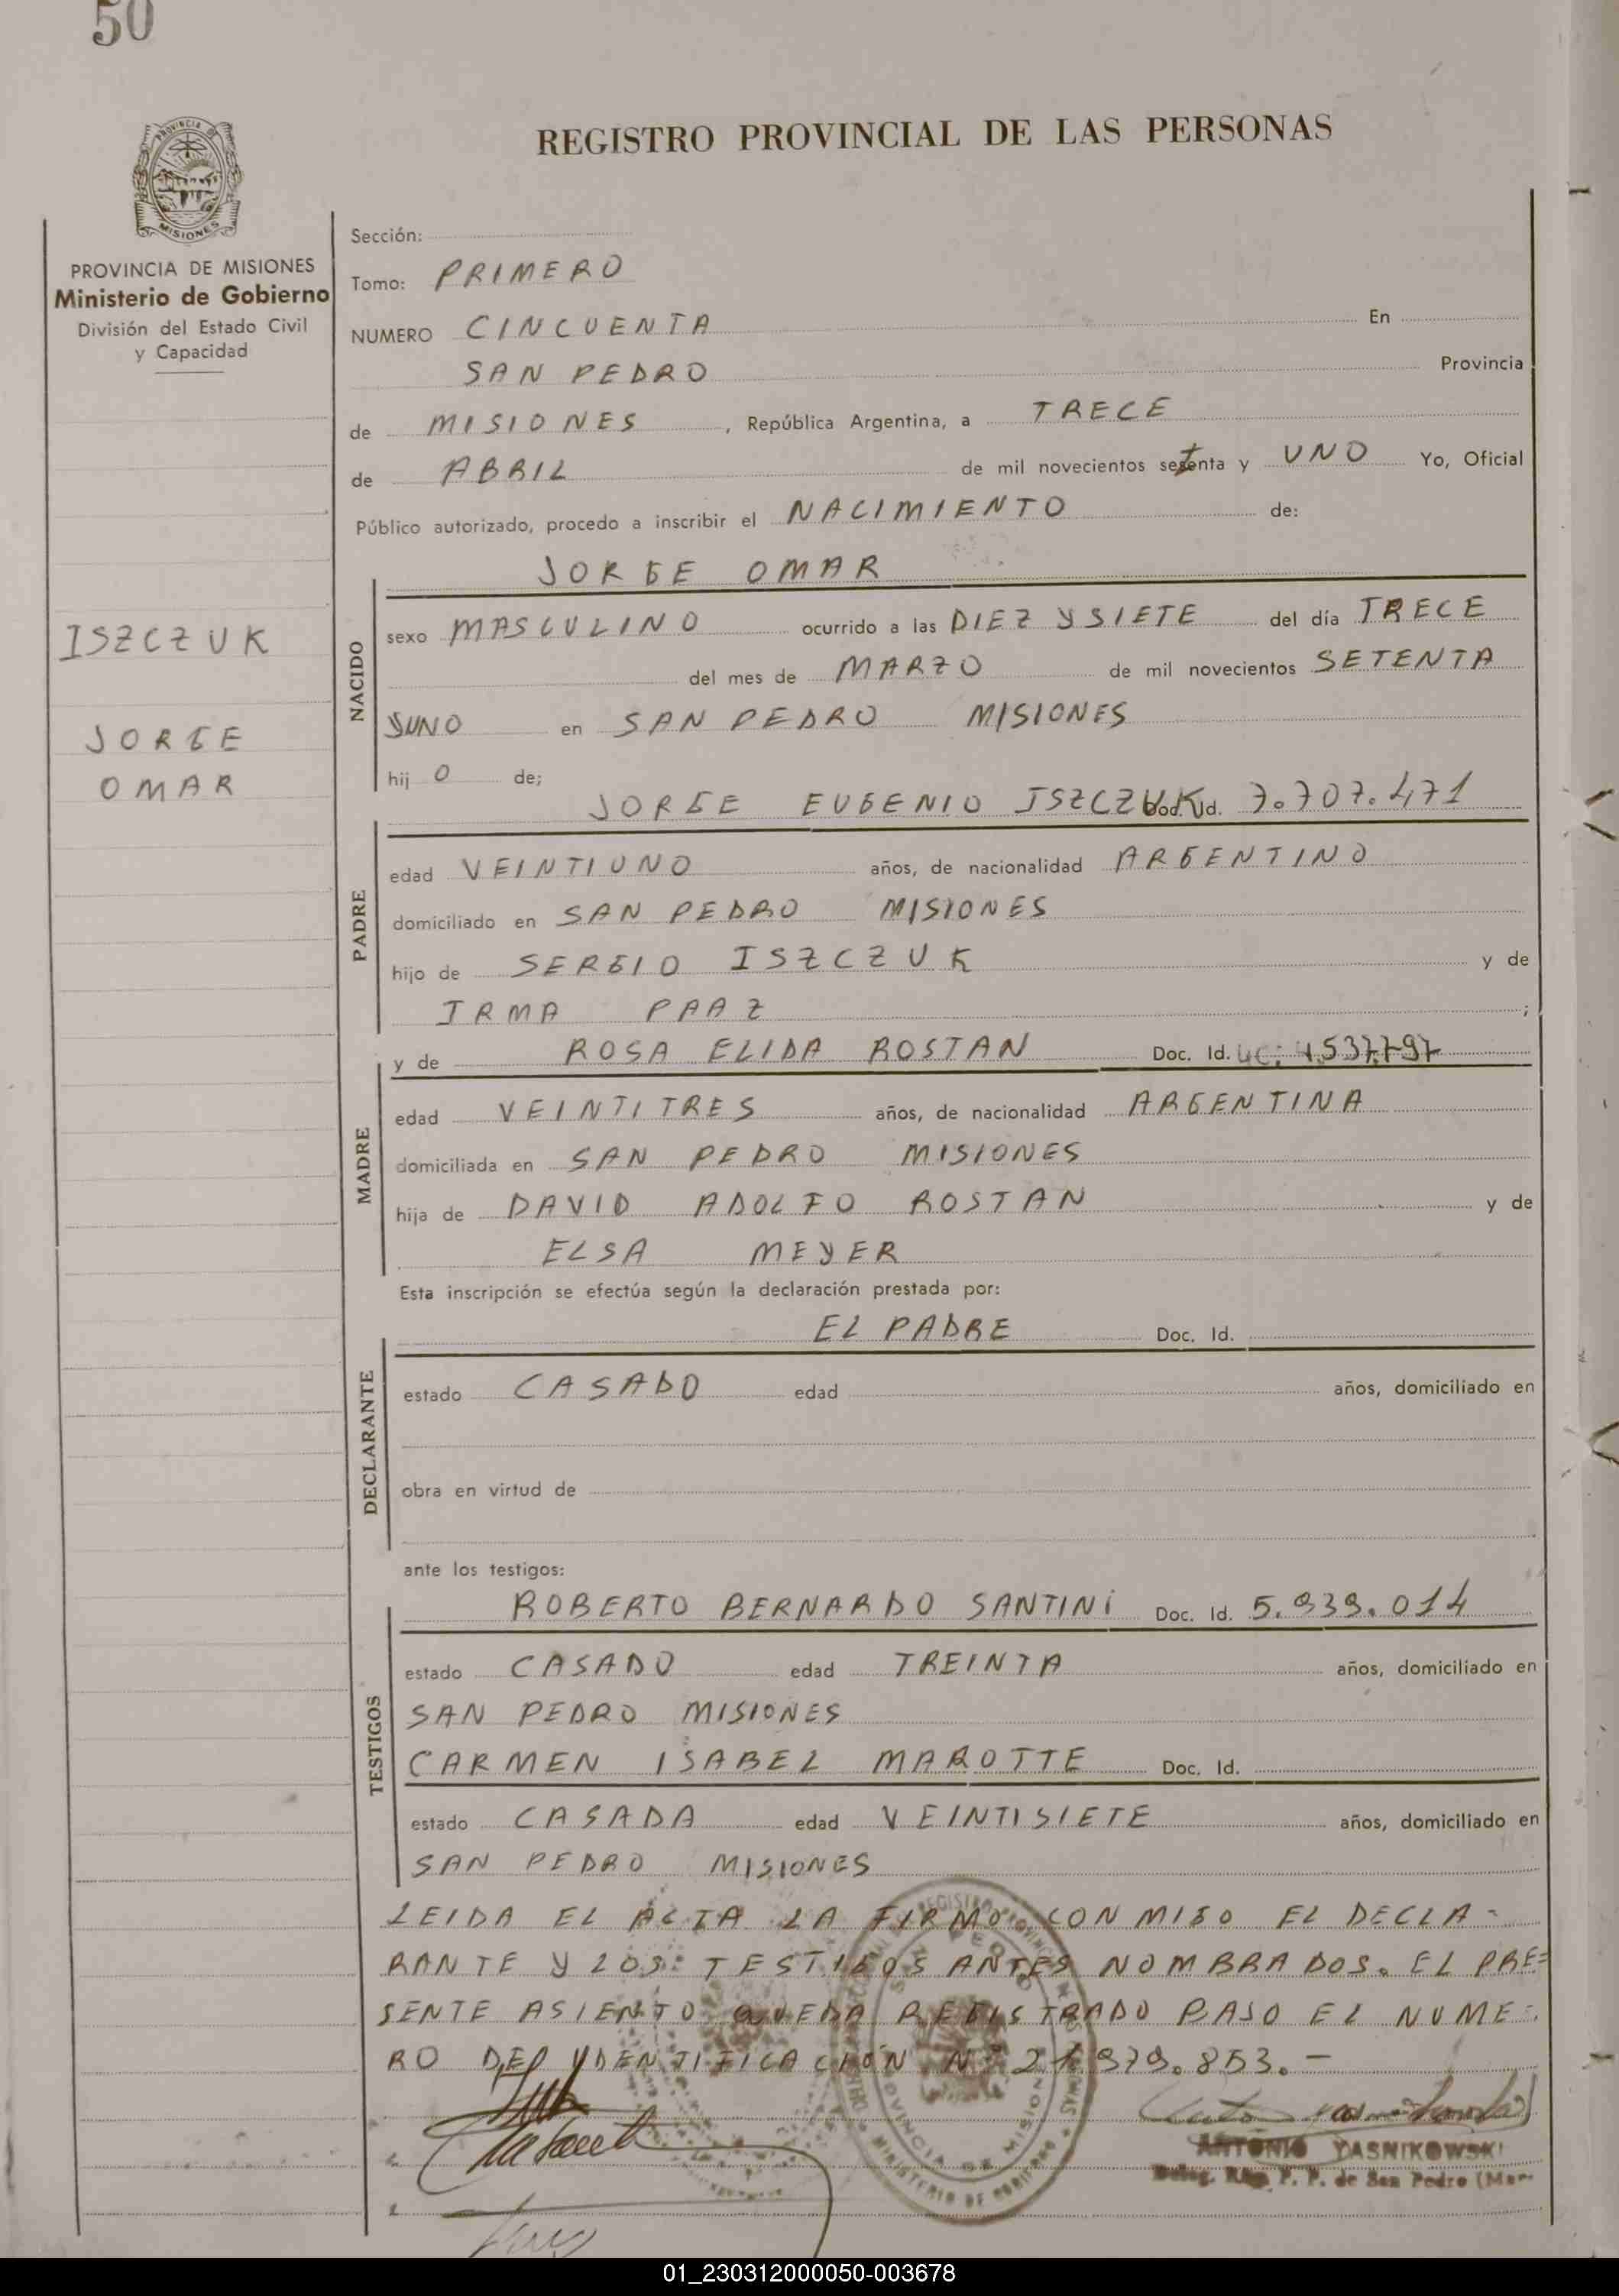 50
REGISTRO PROVINCIAL DE LAS PERSONAS
PROVINCIA DE MISIONES
Ministerio de Gobierno
División del Estado Civil
y Capacidad
ISZCZUK
JORGE
OMAR
Sección:
Tomo: PRIMERO
NUMERO CINCUENTA En
SAN PEDRO Provincia
de MISIONES, República Argentina, a TRECE
de ABRIL de mil novecientos setenta y UNO Yo, Oficial
Público autorizado, procedo a inscribir el NACIMIENTO de:
JORGE OMAR
NACIDO
sexo MASCULINO ocurrido a las DIEZ Y SIETE del día TRECE
del mes de MARZO de mil novecientos SETENTA
Y UNO en SAN PEDRO MISIONES
hij O de;
JORGE EUGENIO ISZCZUK Doc. Id. 7.707.471
PADRE
edad VEINTIUNO años, de nacionalidad ARGENTINO
domiciliado en SAN PEDRO MISIONES
hijo de SERGIO ISZCZUK y de
IRMA PAAZ ;
y de ROSA ELIDA ROSTAN Doc. Id. LC: 4.537.797
MADRE
edad VEINTITRES años, de nacionalidad ARGENTINA
domiciliada en SAN PEDRO MISIONES
hija de DAVID ADOLFO ROSTAN y de
ELSA MEYER
Esta inscripción se efectúa según la declaración prestada por:
EL PADRE Doc. Id.
DECLARANTE
estado CASADO edad años, domiciliado en
obra en virtud de
ante los testigos:
ROBERTO BERNARDO SANTINi Doc. Id. 5.939.014
TESTIGOS
estado CASADO edad TREINTA años, domiciliado en
SAN PEDRO MISIONES
CARMEN ISABEL MAROTTE Doc. Id.
estado CASADA edad VEINTISIETE años, domiciliado en
SAN PEDRO MISIONES
LEIDA EL ACTA LA FIRMO CONMIGO EL DECLA-
RANTE Y LOS TESTIGOS ANTES NOMBRADOS. EL PRE=
SENTE ASIENTO QUEDA REGISTRADO BAJO EL NUME=
RO DE YDENTIFICACION Nº 21.979.853.-
ANTONIO YASNIKOWSKI
P. P. de San Pedro
01_230312000050-003678